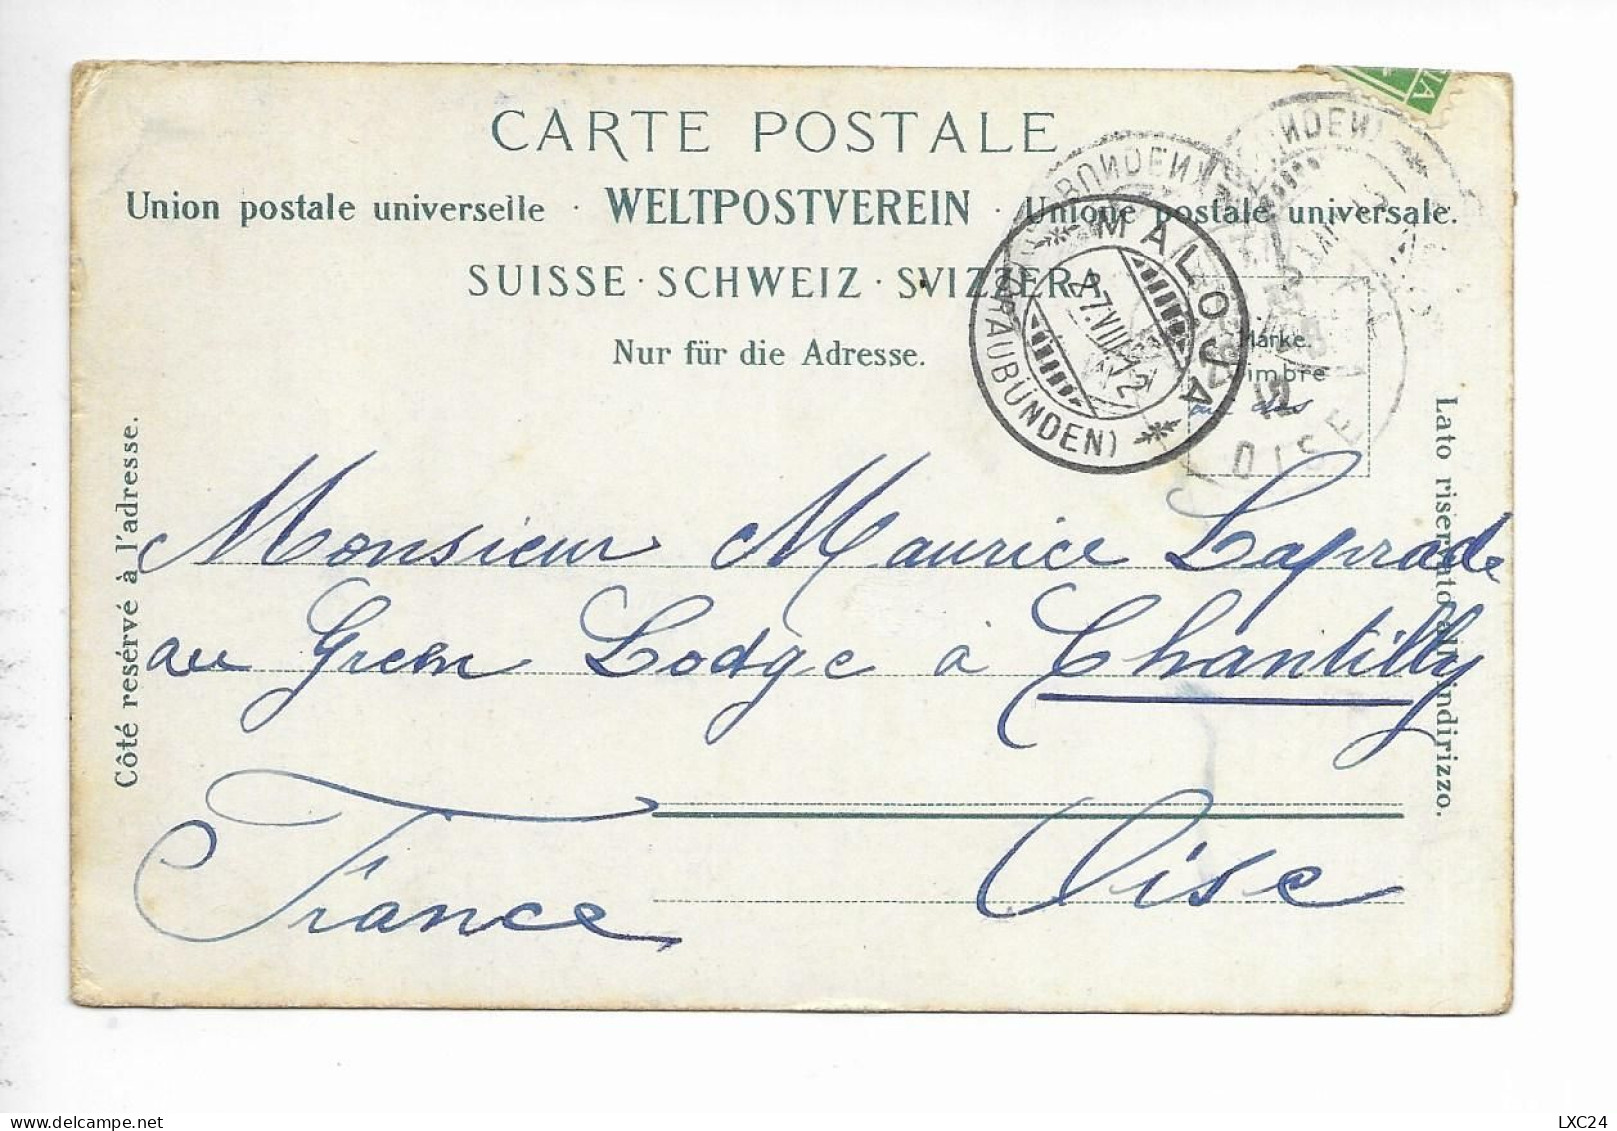 CARTE POSTALE
Union postale universelle · WELTPOSTVEREIN · Unione postale universale.
SUISSE · SCHWEIZ · SVIZZERA
Nur für die Adresse.
MALOJA
(GRAUBÜNDEN)
27.VIII.12
Marke.
Timbre
OISE
Côté resérvé à l'adresse.
Lato riservato all' indirizzo.
Monsieur Maurice Laprade
au Green Lodge à Chantilly
France Oise
LXC24